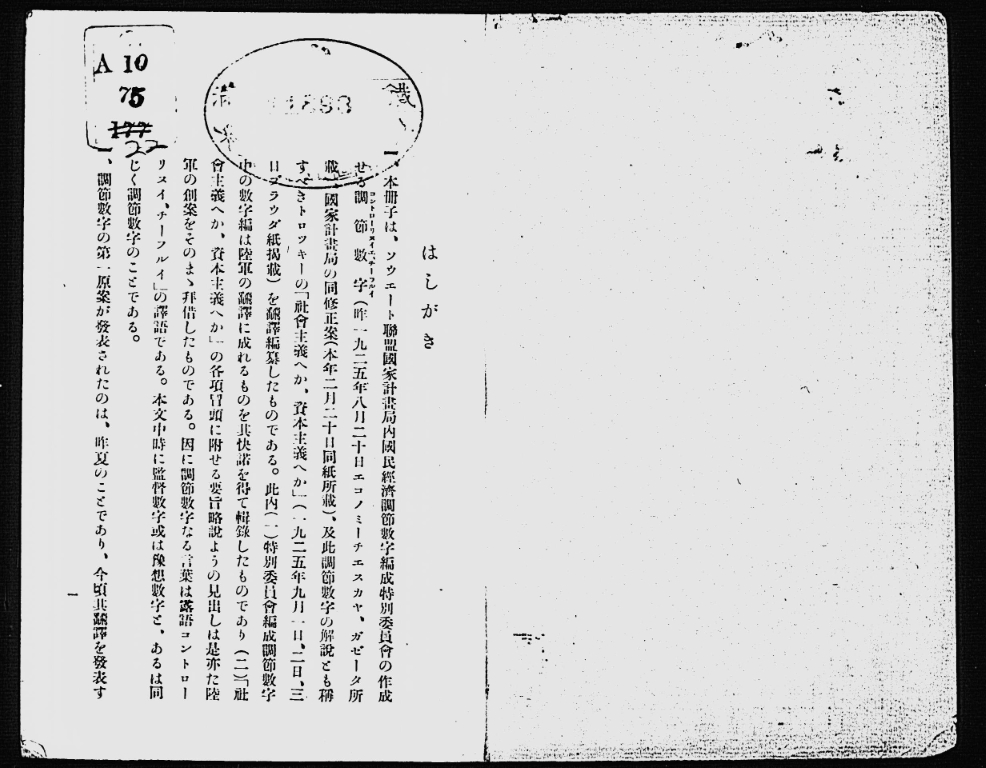 はしがき
一、本册子は、ソウエート聯盟國家計畫局内國民經濟調節數字編成特別委員會の作成
せる調節數字(昨一九二五年八月二十日エコノミーチエスカヤ、ガゼータ所
載)、國家計畫局の同修正案(本年二月二十日同紙所載)、及此調節數字の解說とも稱
すべきトロツキーの「社會主義へか、資本主義へか」(一九二五年九月一日、二日、三
日プラウダ紙揭載)を飜譯編纂したものである。此内(一)特別委員會編成調節數字
中の數字編は陸軍の飜譯に成れるものを其快諾を得て輯錄したものであり(二)「社
會主義へか、資本主義へか」の各項冒頭に附せる要旨略說ようの見出しは是亦た陸
軍の創案をそのまゝ拜借したものである。因に調節數字なる言葉は露語コントロー
リヌイ、チーフルイ」の譯語である。本文中時に監督數字或は豫想數字と、あるは同
じく調節數字のことである。
一、調節數字の第一原案が發表されたのは、昨夏のことであり、今頃其飜譯を發表す
一
A 10
75
22